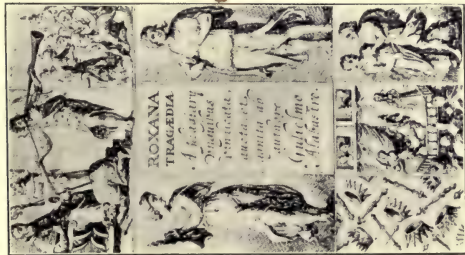 ROXANA
TRAGÆDIA
A plagiary
unguibus
vindicata,
aucta, et
agnita ab
authore
Gulielmo
Alabastro.